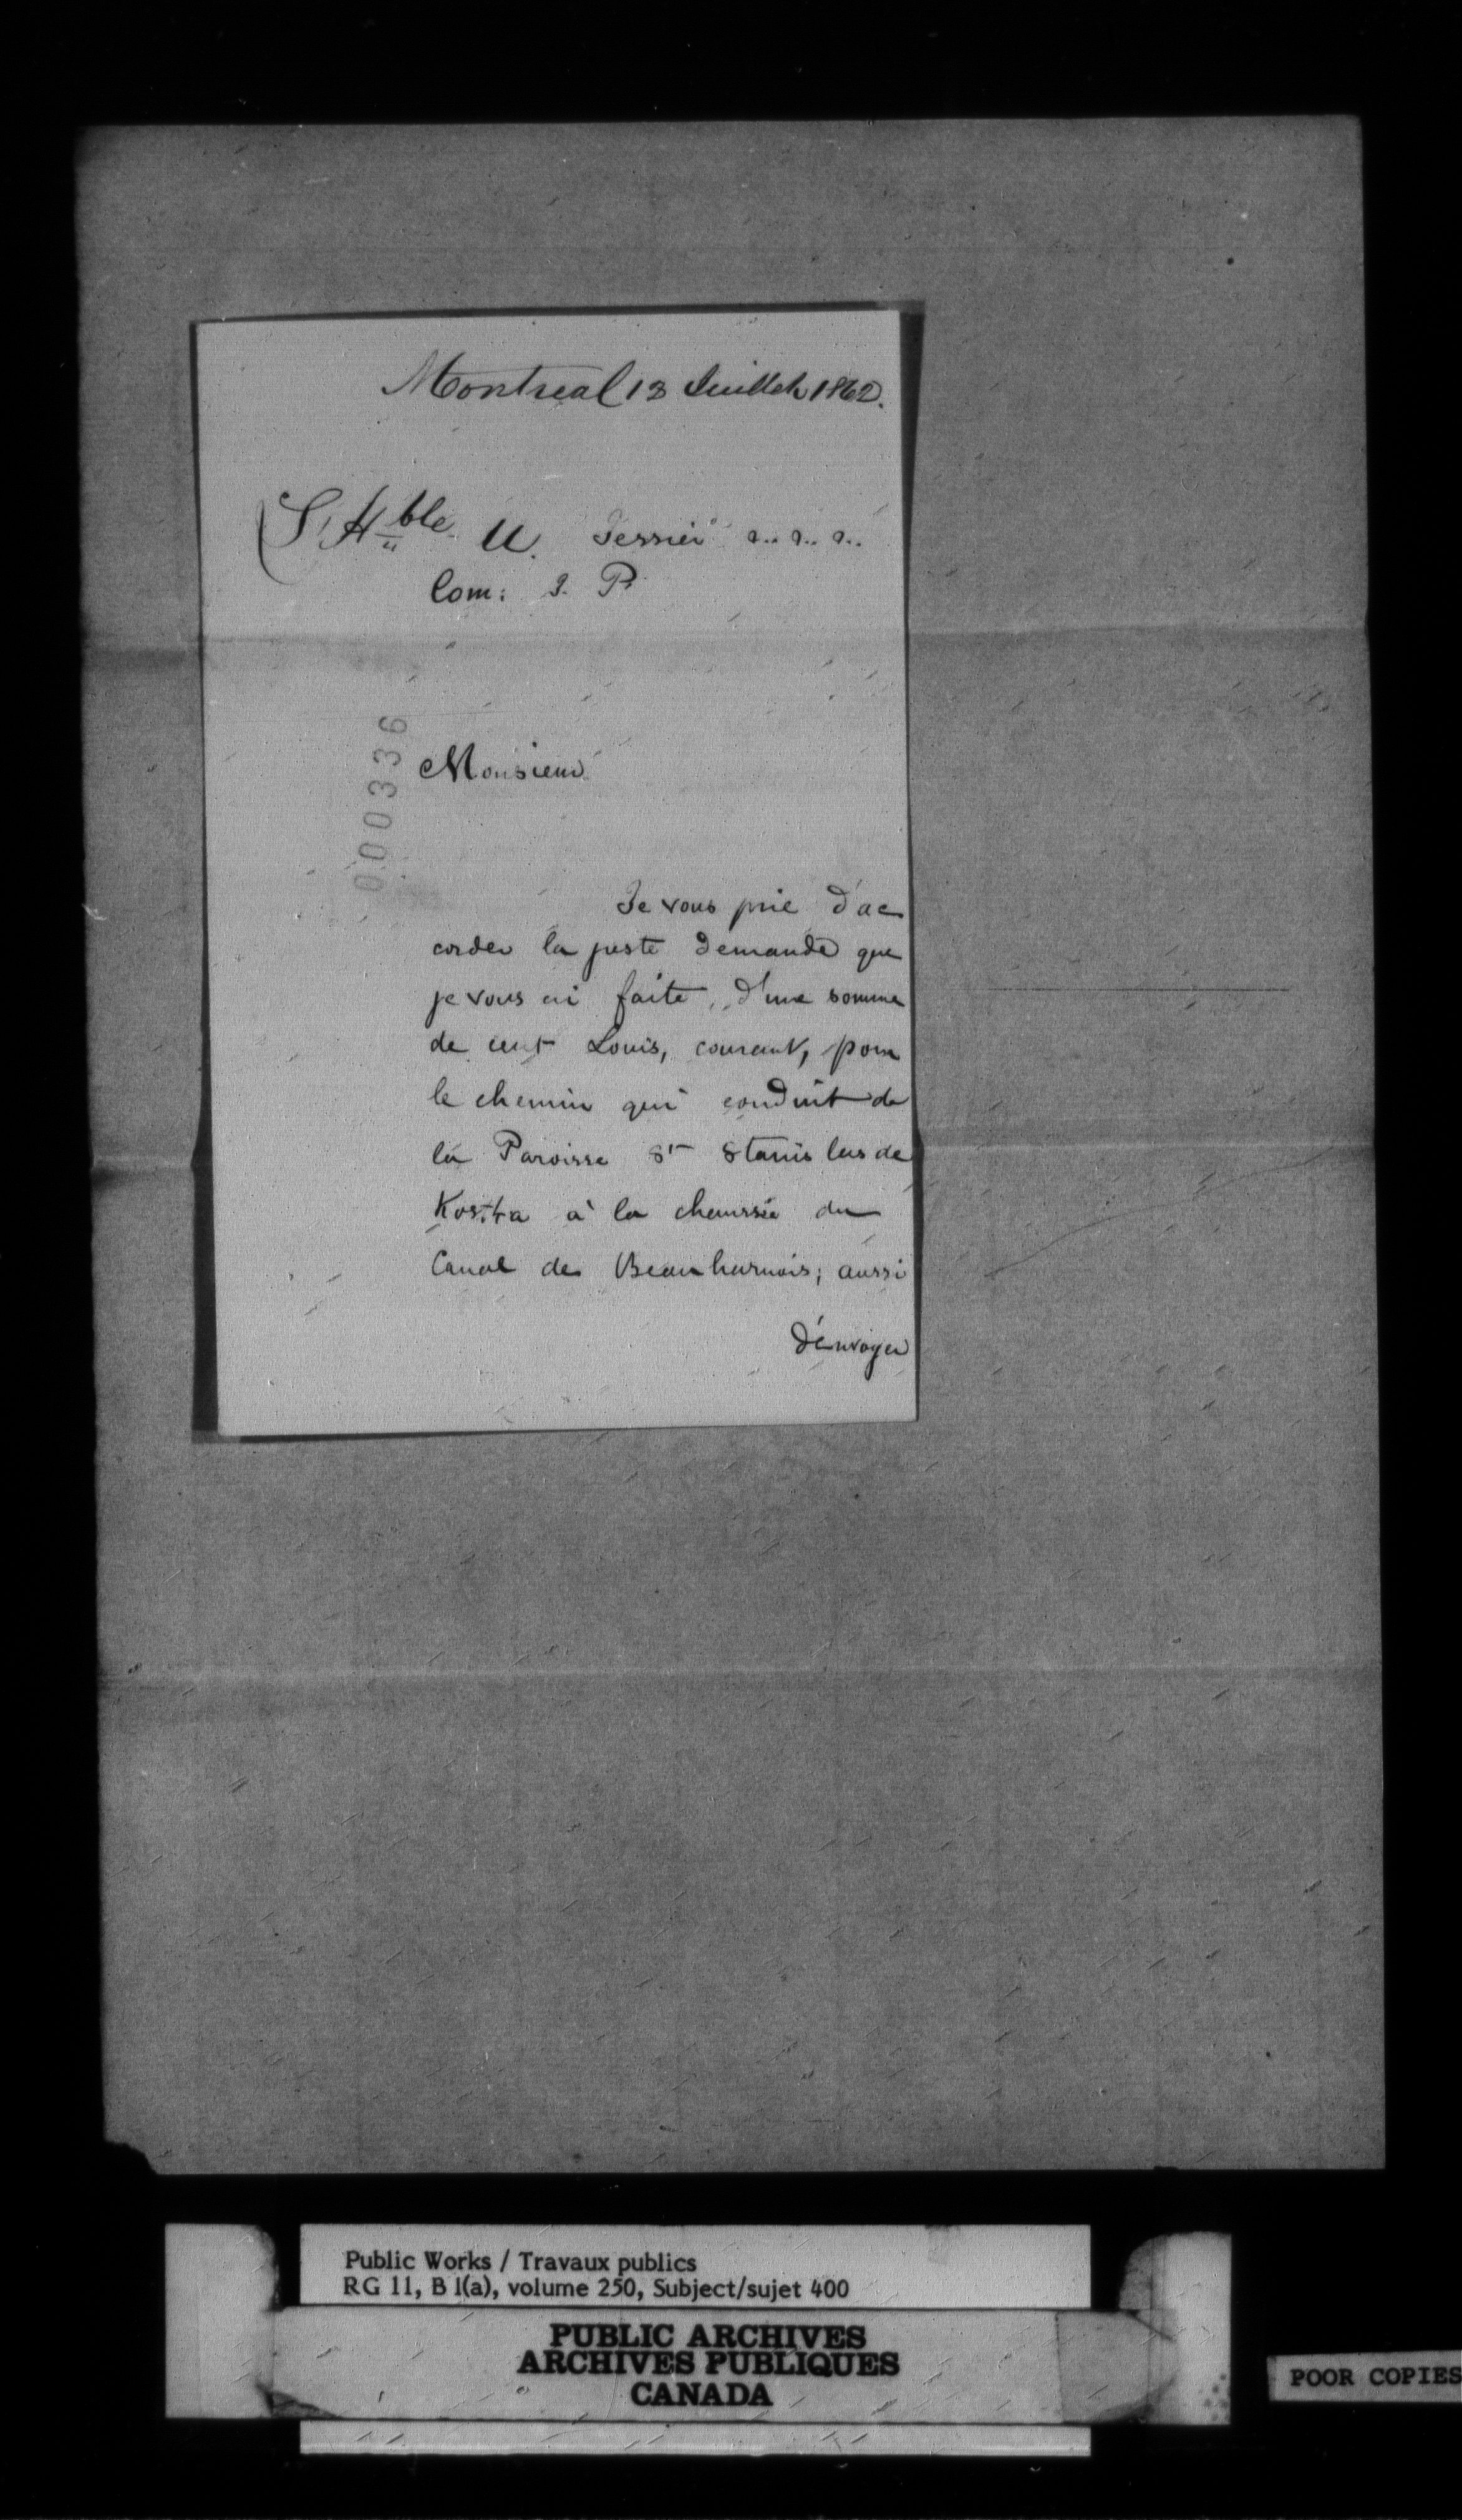 Montreal 12 Juillet 1862.
L'Hble U. Tessier
Com: T. P.
000336
Monsieur
Je vous prie d'ac
corder la juste demande que
je vous ai faite, d'une somme
de cent Louis, courant, pour
le chemin qui conduit de
la Paroisse St Stanislas de
Kostka à la chaussée du
Canal de Beauharnois; aussi
d'envoyer
Public Works / Travaux publics
RG 11, B 1(a), volume 250, Subject/sujet 400
PUBLIC ARCHIVES
ARCHIVES PUBLIQUES
CANADA
POOR COPIES